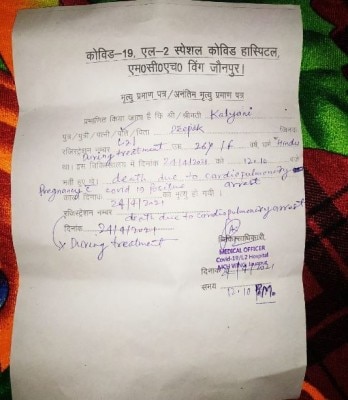 कोविड-19, एल-2 स्पेशल कोविड हास्पिटल,
एम०सी०एच० विंग जौनपुर।
मृत्यु प्रमाण पत्र/अनंतिम मृत्यु प्रमाण पत्र
प्रमाणित किया जाता है कि श्री/श्रीमती Kalyani
पुत्र/पुत्री/पत्नी/पति/पिता Deepak जिनका
रजिस्ट्रेशन नम्बर 26y / F वर्ष धर्म Hindu
During treatment
था। इस चिकित्सालय में दिनांक 24/4/2021 को 12:10
भर्ती हुए थे। death due to cardiopulmonary arrest
Pregnancy c̄ covid 19 positive
दिनांक 24/4/2021 को मृत्यु हो गयी।
रजिस्ट्रेशन नम्बर death due to cardiopulmonary arrest
दिनांक 24/4/2021
During treatment
चिकित्साधिकारी
MEDICAL OFFICER
Covid-19/L2 Hospital
MCH Wing Jaunpur
दिनांक 2021
समय 12:10 P.M.